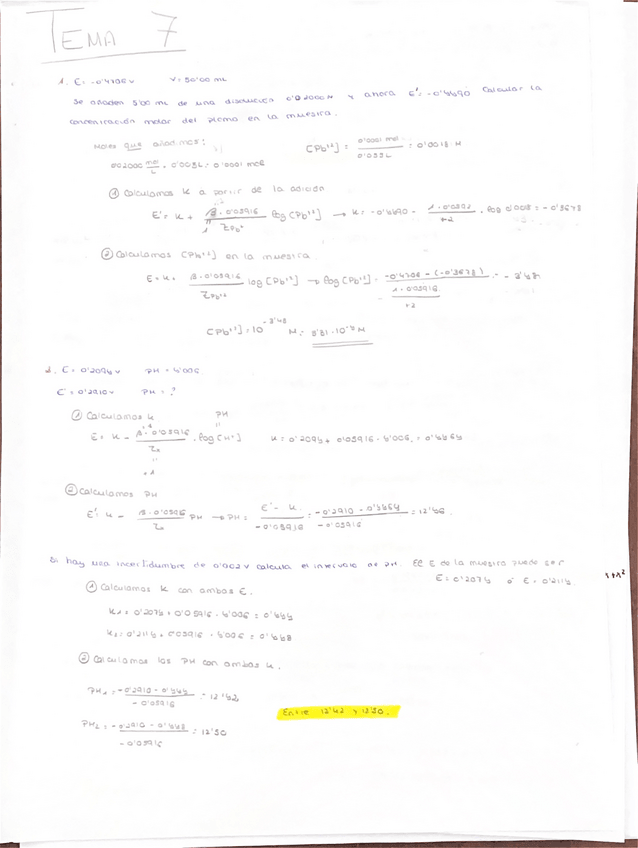 TEMA 7
1. E = -0'4706 V V = 50'00 mL
Se añaden 5'00 mL de una disolución 0'02000 M y ahora E' = -0'4490 Calcular la
concentración molar del plomo en la muestra.
Moles que añadimos: [Pb+2] = 0'0001 mol / 0'055L = 0'0018 M
0'02000 mol/L · 0'005L = 0'0001 mol
① Calculamos K a partir de la adición
E' = K + β · 0'05916 / ZPb+2 log [Pb+2] → K = -0'4490 - 1 · 0'0592 / +2 · log 0'0018 = -0'3678
② Calculamos [Pb+2] en la muestra.
E = K + β · 0'05916 / ZPb+2 log [Pb+2] → log [Pb+2] = -0'4706 - (-0'3678) / 1 · 0'05916 / +2 = -3'48
[Pb+2] = 10 -3'48 M = 3'31 · 10-4 M
2. E = 0'2094 V PH = 4'006
E' = -0'2910 V PH = ?
① Calculamos K PH
E = K - β · 0'05916 / Z · log [H+] K = 0'2094 + 0'05916 · 4'006 = 0'4464
+1
② Calculamos PH
E' = K - β · 0'05916 / Z PH → PH = E' - K / -0'05916 = -0'2910 - 0'4464 / -0'05916 = 12'46
Si hay una incertidumbre de 0'002 V calcula el intervalo de PH. El E de la muestra puede ser
E = 0'2074 o E = 0'2114
① Calculamos K con ambas E.
K1 = 0'2074 + 0'05916 · 4'006 = 0'444
K2 = 0'2114 + 0'05916 · 4'006 = 0'448
② Calculamos los PH con ambas K.
PH1 = -0'2910 - 0'444 / -0'05916 = 12'42
Entre 12'42 y 12'50.
PH2 = -0'2910 - 0'448 / -0'05916 = 12'50